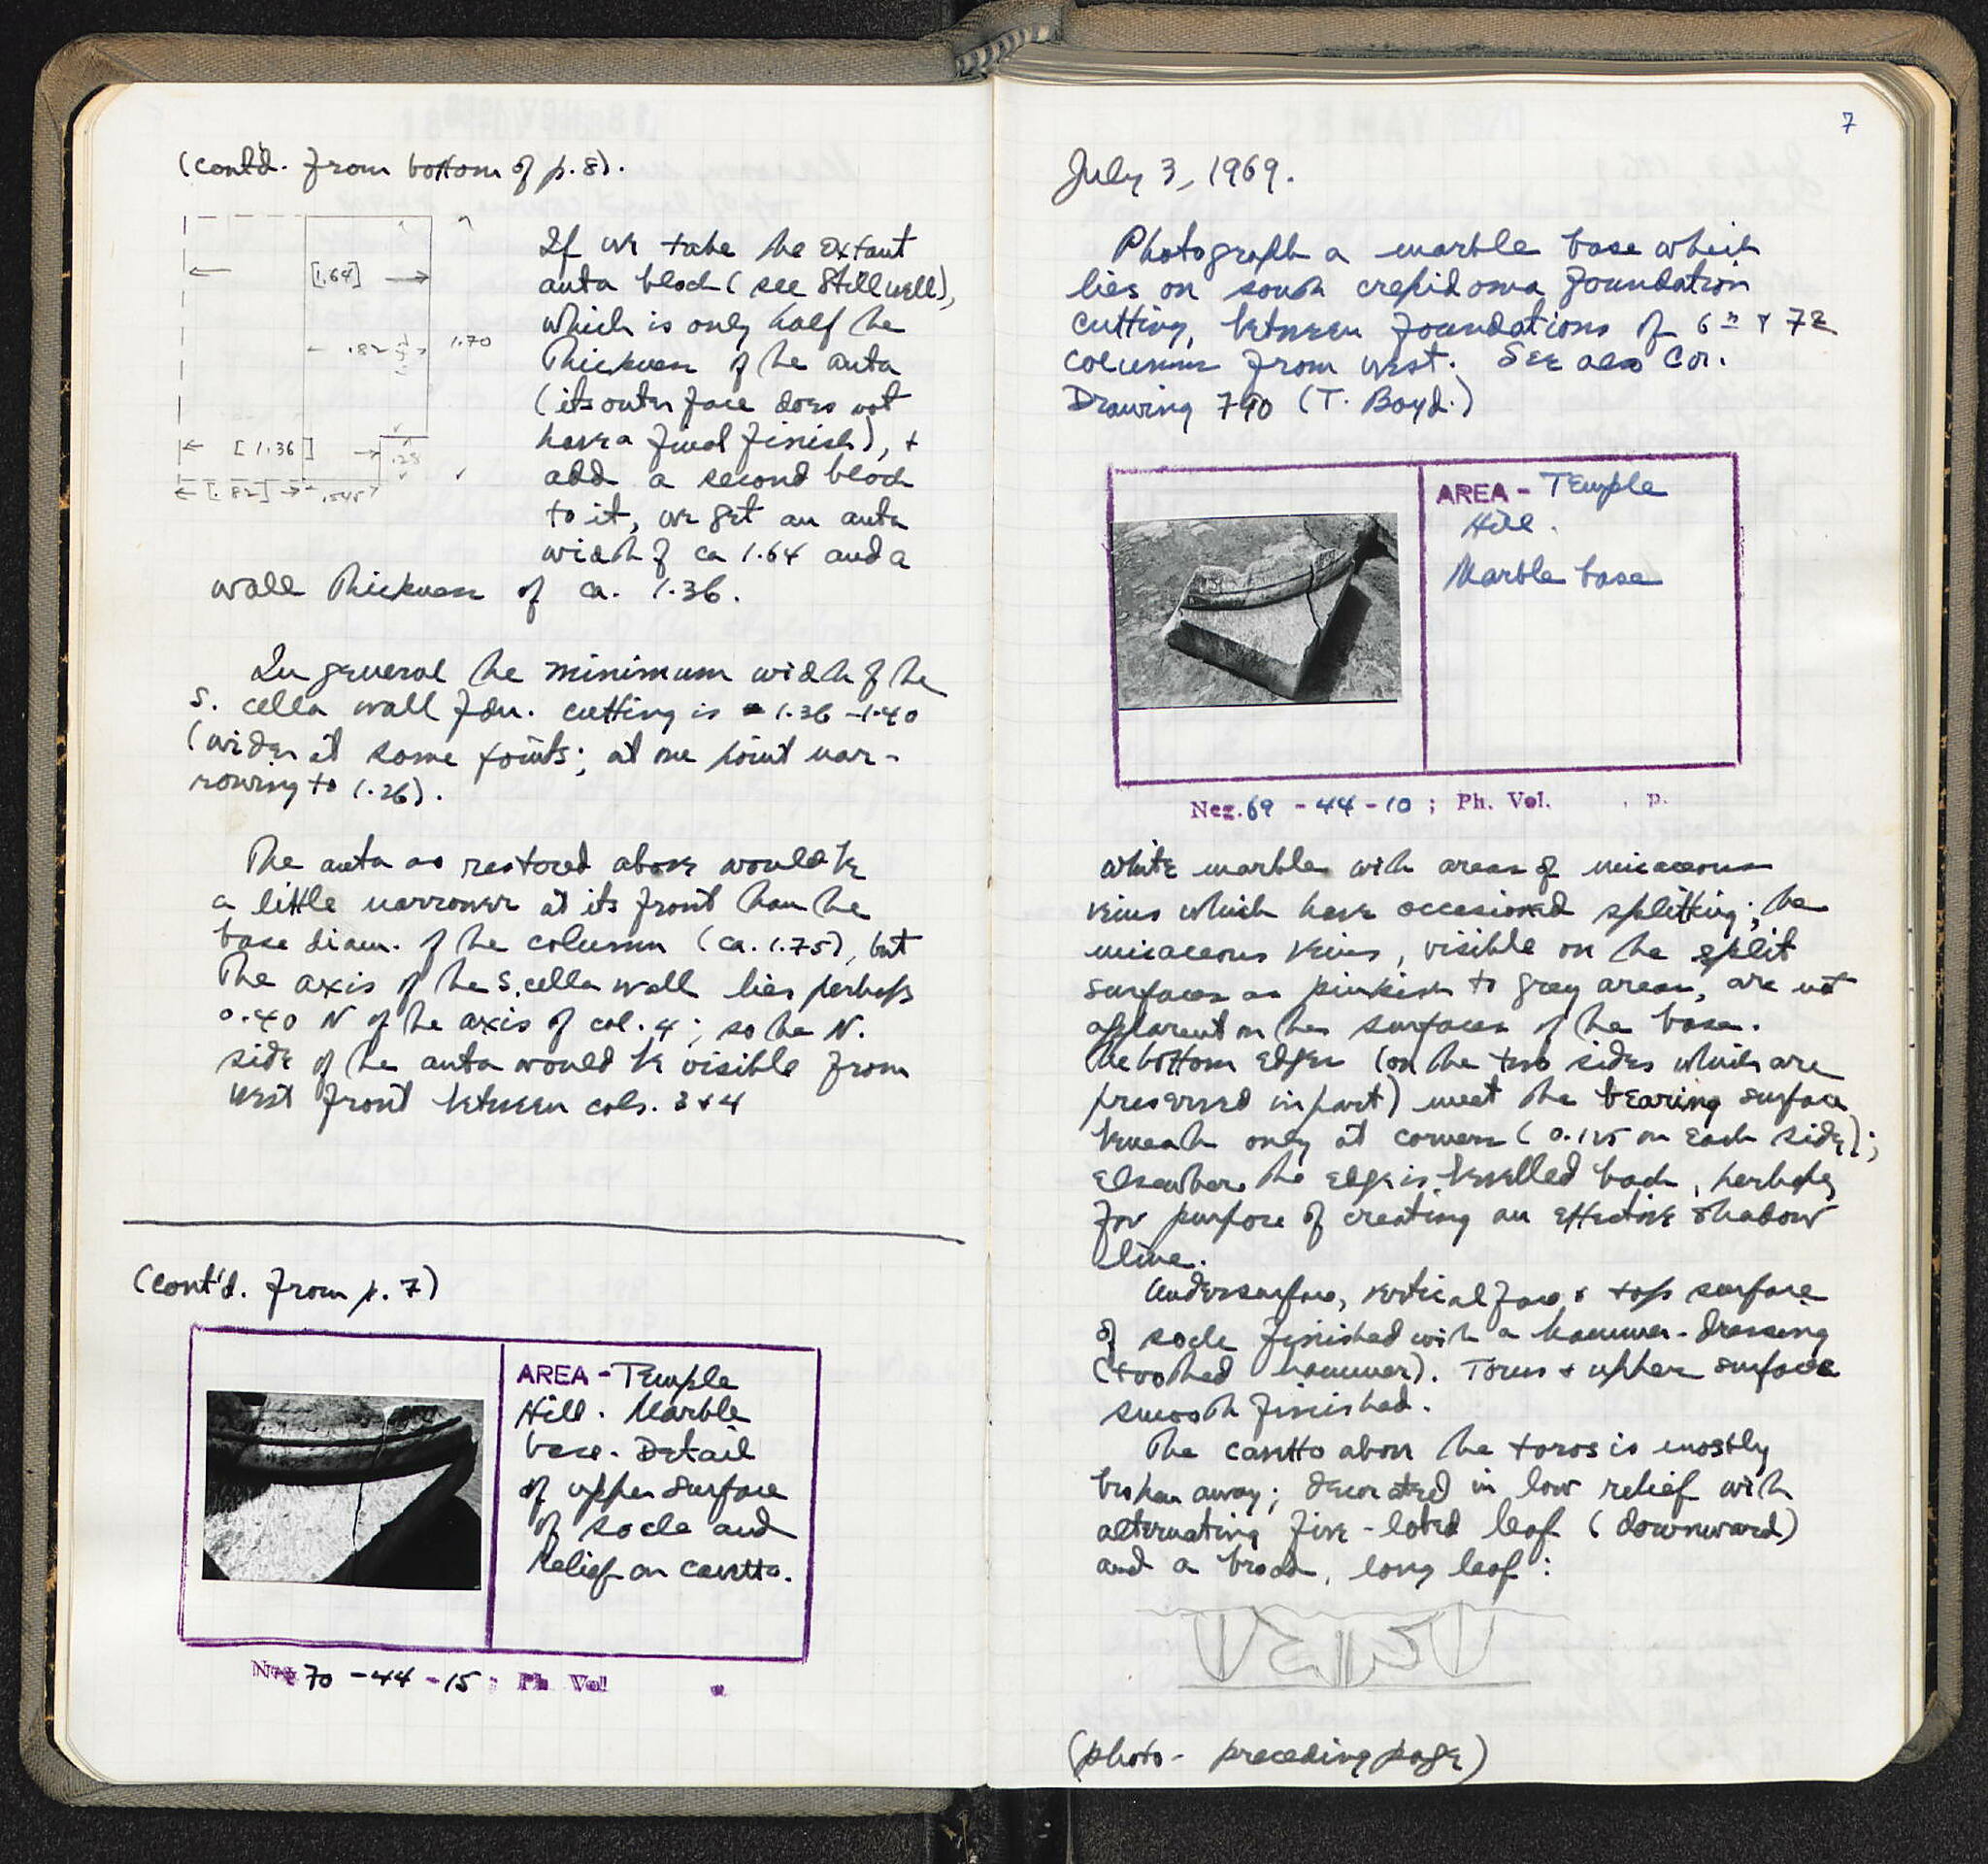 (cont'd. from bottom of p. 8).
[1.64]
.82
1.70
[1.36]
.28
[.82]
.545
If we take the extant
anta block (see Stillwell),
which is only half the
thickness of the anta
(its outer face does not
have a final finish), +
add a second block
to it, we get an anta
width of ca 1.64 and a
wall thickness of ca. 1.36.
In general the minimum width of the
S. cella wall fdn. cutting is 1.36 - 1.40
(wider at some points; at one point nar-
rowing to 1.26).
The anta as restored above would be
a little narrower at its front than the
base diam. of the column (ca. 1.75), but
the axis of the S. cella wall lies perhaps
0.40 N of the axis of col. 4; so the N.
side of the anta would be visible from
west front between cols. 3 + 4
(cont'd. from p. 7)
AREA - Temple
Hill. Marble
base. Detail
of upper surface
of socle and
relief on cavetto.
Neg. 70 - 44 - 15 ; Ph. Vol
7
July 3, 1969.
Photograph a marble base which
lies on south crepidoma foundation
cutting, between foundations of 6th + 7th
columns from west. See also Cor.
Drawing 790 (T. Boyd.)
AREA - Temple
Hill.
Marble base
Neg. 69 - 44 - 10 ; Ph. Vol. , p.
White marble with areas of micaceous
veins which have occasioned splitting; the
micaceous veins, visible on the split
surfaces as pinkish to grey areas, are not
apparent on the surfaces of the base.
The bottom edges (on the two sides which are
preserved in part) meet the bearing surface
beneath only at corners (0.125 on each side);
elsewhere the edge is bevelled back, perhaps
for purpose of creating an effective shadow
line.
Undersurface, vertical face, + top surface
of socle finished with a hammer-dressing
(toothed hammer). Torus + upper surface
smooth finished.
The cavetto above the torus is mostly
broken away; decorated in low relief with
alternating five-lobed leaf (downward)
and a broad, long leaf:
(photo - preceding page)